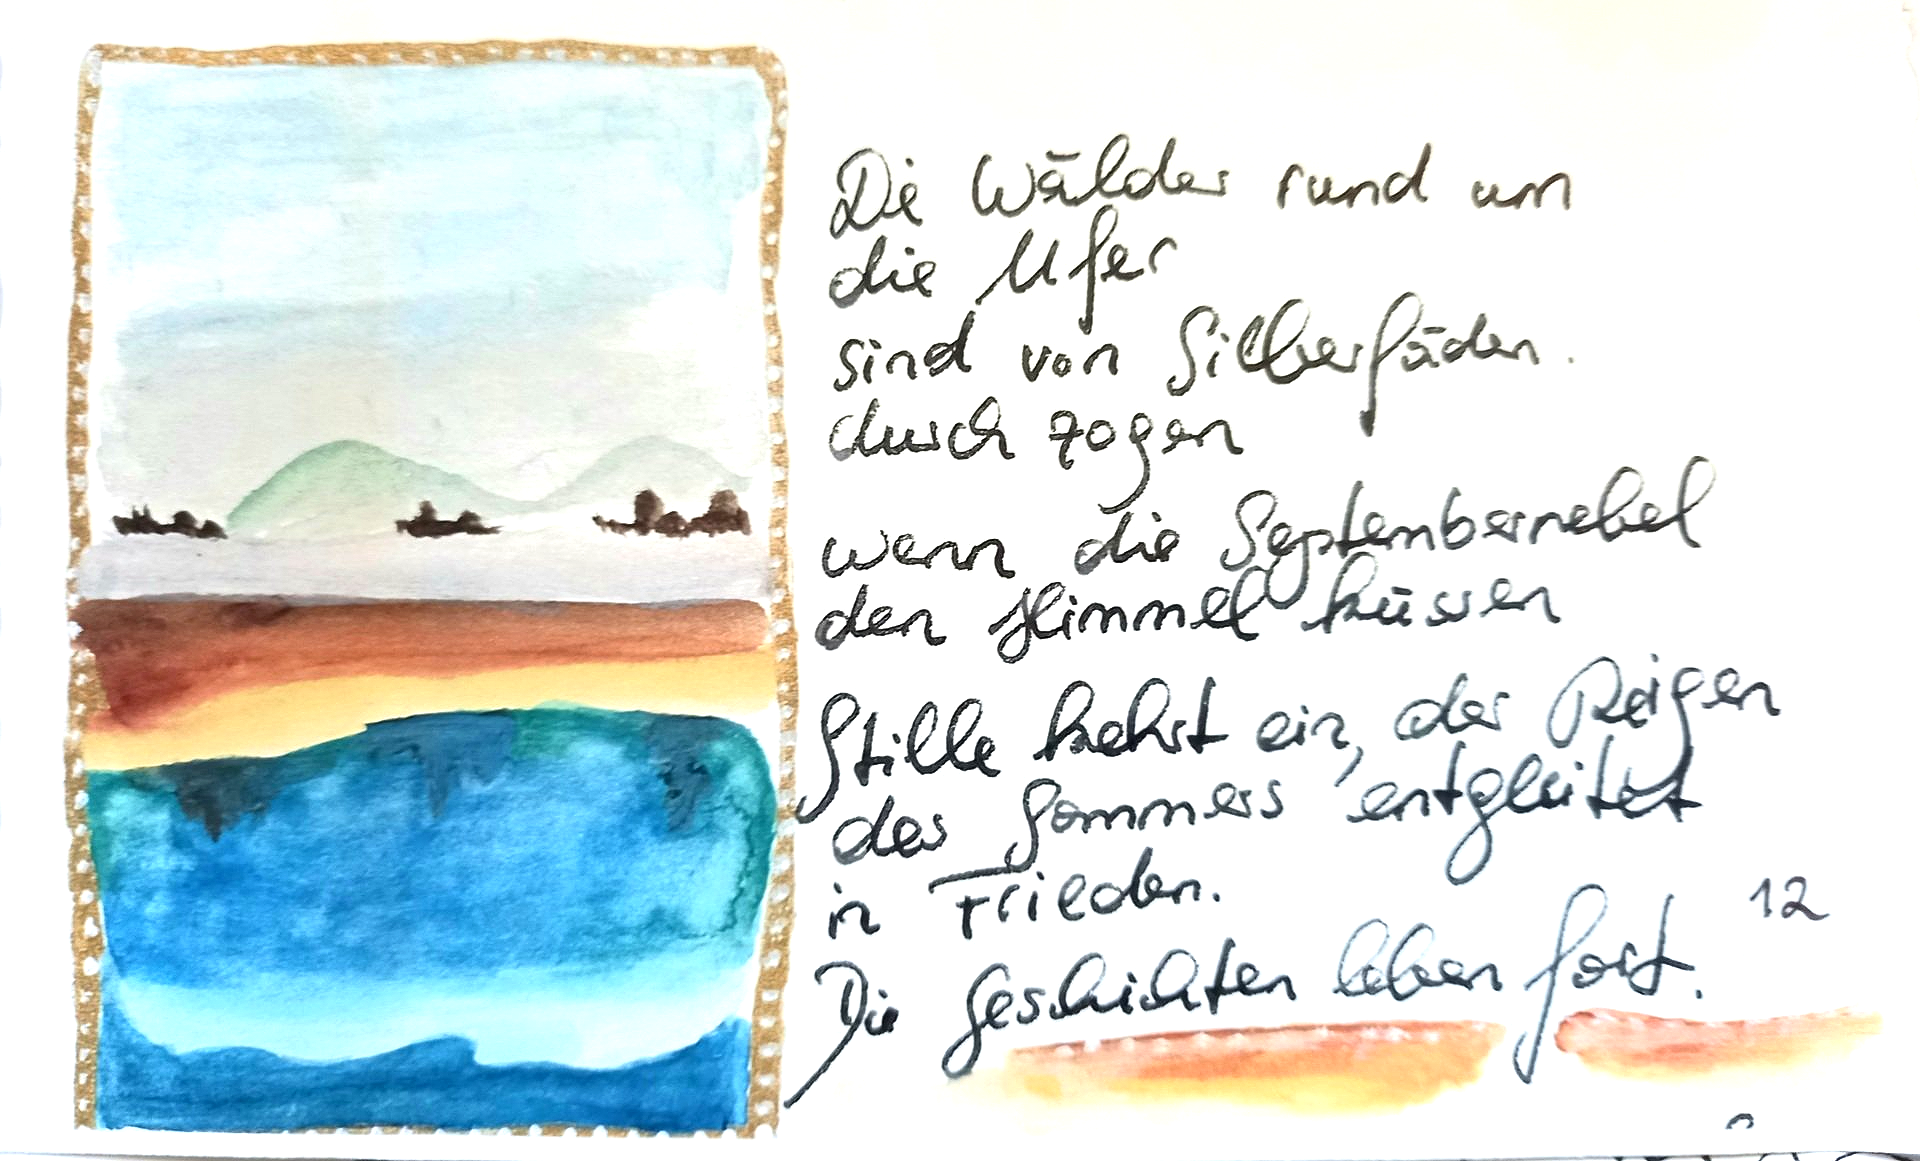 Die Wälder rund um
die Ufer
sind von Silberfäden.
durch zogen
wenn die Septembernebel
den Himmel küssen
Stille kehrt ein, der Reigen
des Sommers entgleitet
in Frieden.
12
Die Geschichten leben fort.